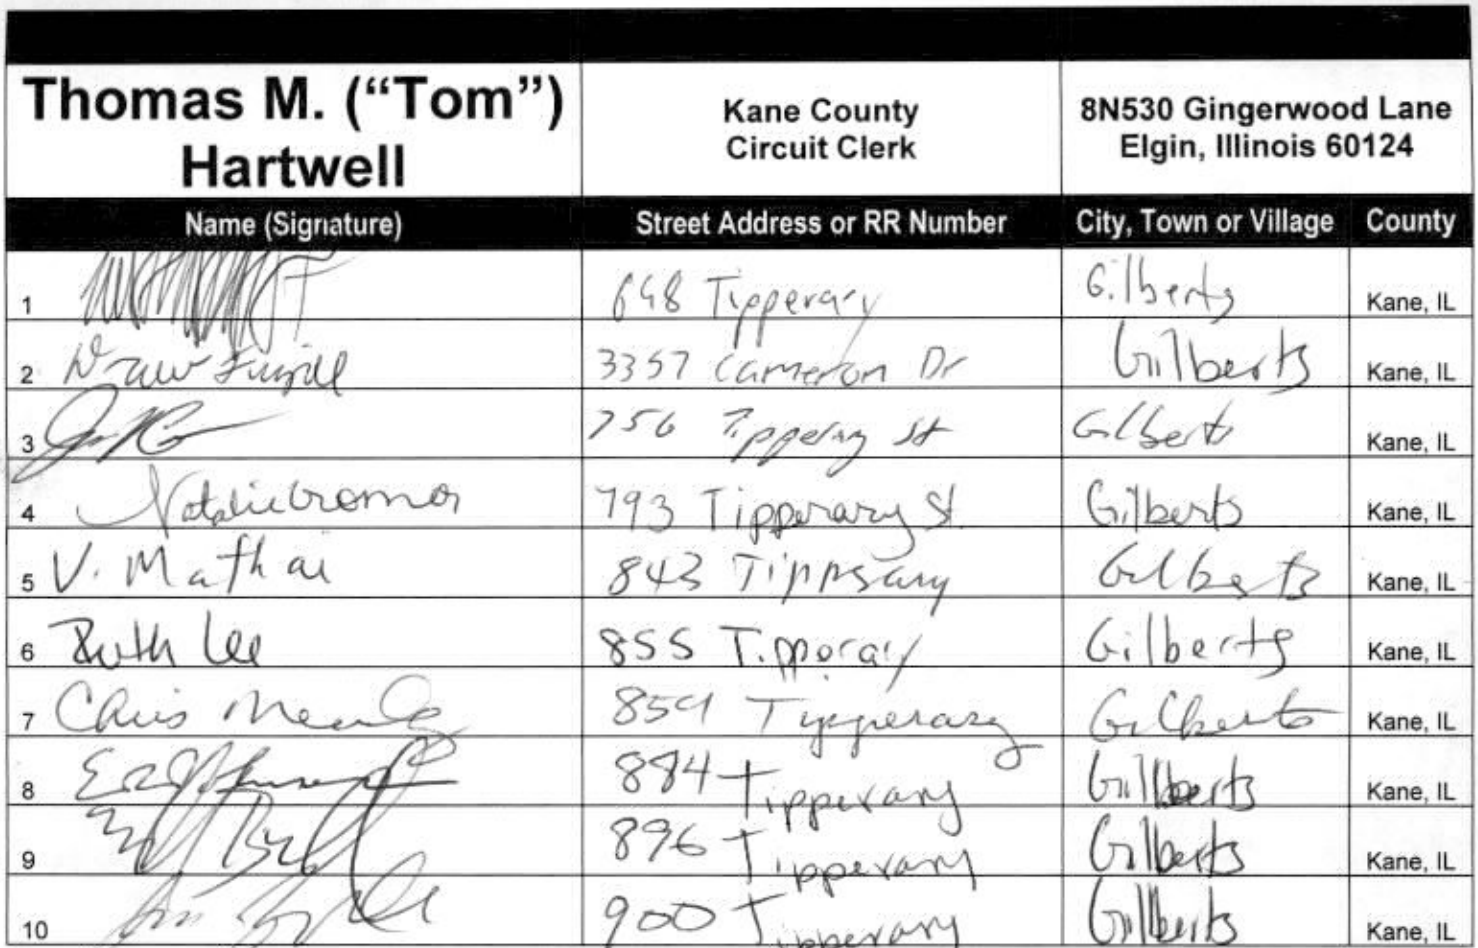 Thomas M. (“Tom”) Hartwell
Kane County Circuit Clerk
8N530 Gingerwood Lane
Elgin, Illinois 60124
Name (Signature) Street Address or RR Number City, Town or Village County
1 648 Tipperary Gilberts Kane, IL
2 3357 Cameron Dr Gilberts Kane, IL
3 756 St Gilberts Kane, IL
4 Natalie 793 Tipperary St. Gilberts Kane, IL
5 V. Mathai 843 Tipperary Gilberts Kane, IL
6 Ruth Lee 855 Tipperary Gilberts Kane, IL
7 Chris Tipperary Gilberts Kane, IL
8 884 Tipperary Gilberts Kane, IL
9 896 Tipperary Gilberts Kane, IL
10 900 Tipperary Gilberts Kane, IL